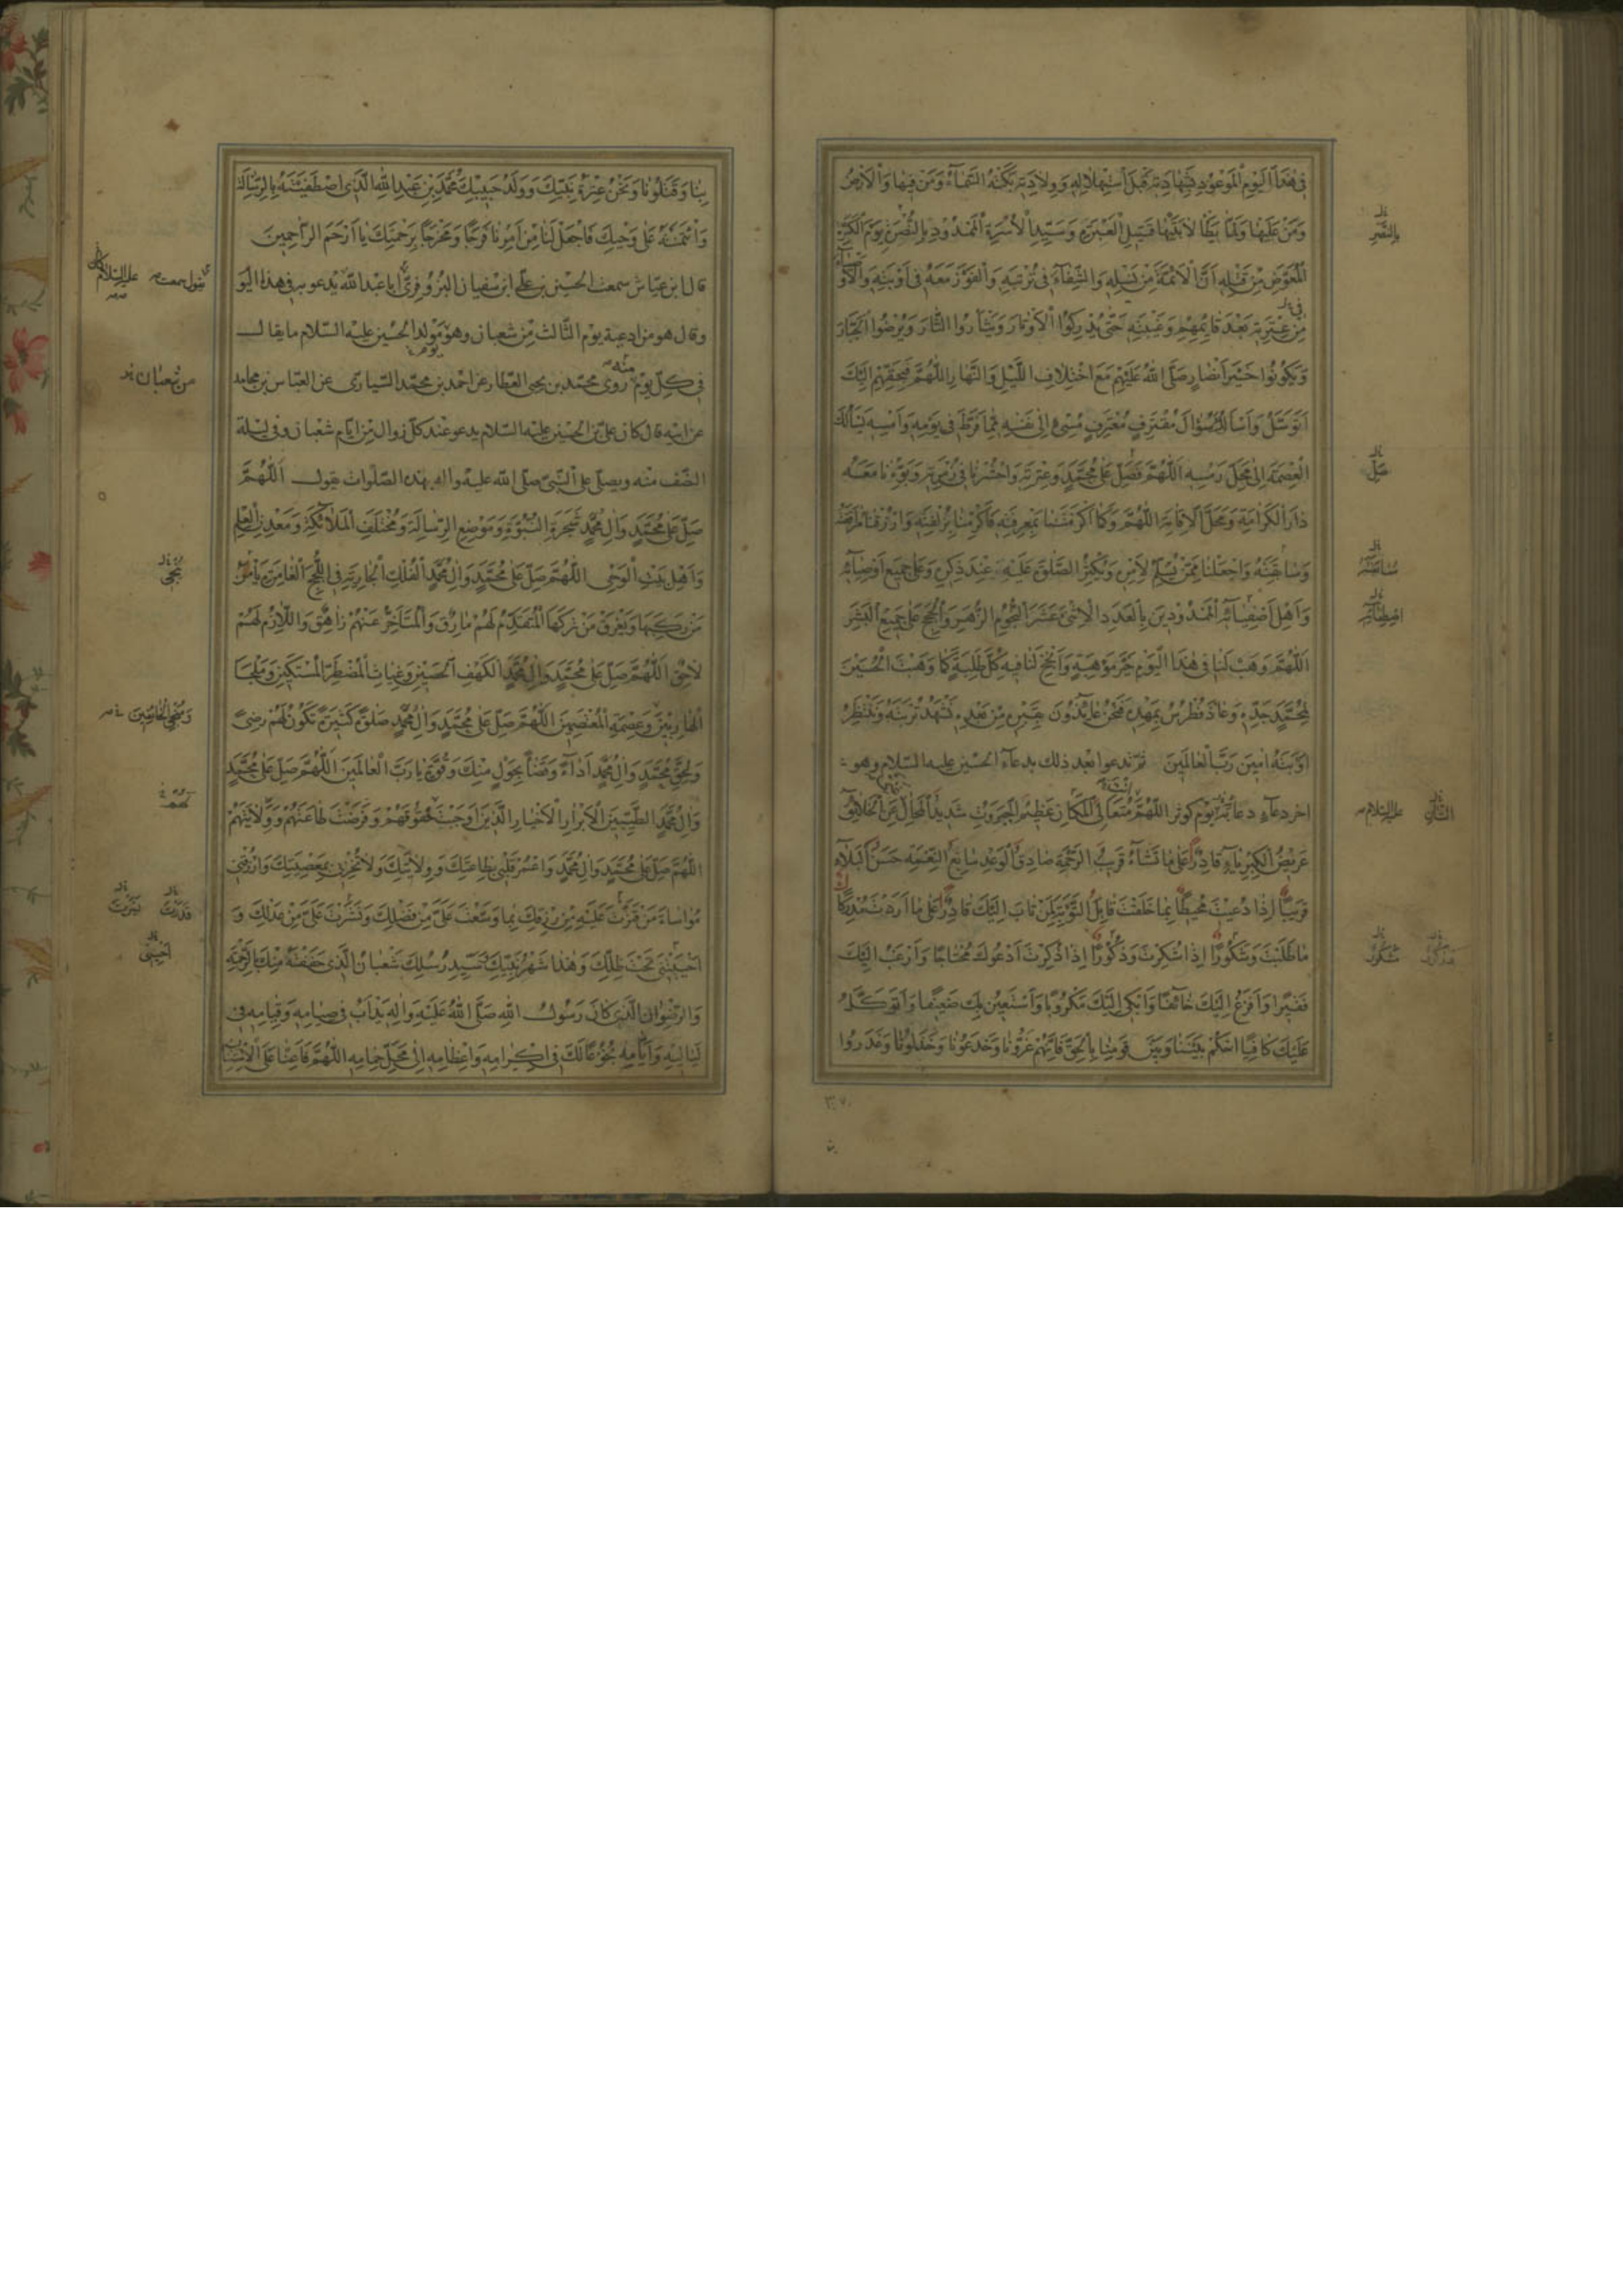 فِي هٰذَا الْيَوْمِ الْمَوْعُودِ بِشَهَادَتِهِ قَبْلَ اسْتِهْلَالِهِ وَوِلَادَتِهِ بَكَتْهُ السَّمَآءُ وَمَنْ فِيهَا وَالْأَرْضُ
وَمَنْ عَلَيْهَا وَلَمَّا يَطَأْ لَابَتَيْهَا قَتِيلِ الْعَبْرَةِ وَسَيِّدِ الْأُسْرَةِ الْمَمْدُودِ بِالنُّصْرَةِ يَوْمَ الْكَرَّةِ
الْمُعَوَّضِ مِنْ قَتْلِهِ أَنَّ الْأَئِمَّةَ مِنْ نَسْلِهِ وَالشِّفَآءَ فِي تُرْبَتِهِ وَالْفَوْزَ مَعَهُ فِي أَوْبَتِهِ وَالْأَوْصِيَآءَ
مِنْ عِتْرَتِهِ بَعْدَ قَائِمِهِمْ وَغَيْبَتِهِ حَتّٰى يُدْرِكُوا الْأَوْتَارَ وَيَثْأَرُوا الثَّارَ وَيُرْضُوا الْجَبَّارَ
وَيَكُونُوا خَيْرَ أَنْصَارٍ صَلَّى اللّٰهُ عَلَيْهِمْ مَعَ اخْتِلَافِ اللَّيْلِ وَالنَّهَارِ اللّٰهُمَّ فَبِحَقِّهِمْ إِلَيْكَ
أَتَوَسَّلُ وَأَسْأَلُ سُؤَالَ مُقْتَرِفٍ مُعْتَرِفٍ مُسِيءٍ إِلٰى نَفْسِهِ مِمَّا فَرَّطَ فِي يَوْمِهِ وَأَمْسِهِ يَسْأَلُكَ
الْعِصْمَةَ إِلٰى مَحَلِّ رَمْسِهِ اللّٰهُمَّ فَصَلِّ عَلٰى مُحَمَّدٍ وَعِتْرَتِهِ وَاحْشُرْنَا فِي زُمْرَتِهِ وَبَوِّئْنَا مَعَهُ
دَارَ الْكَرَامَةِ وَمَحَلَّ الْإِقَامَةِ اللّٰهُمَّ وَكَمَا أَكْرَمْتَنَا بِمَعْرِفَتِهِ فَأَكْرِمْنَا بِزُلْفَتِهِ وَارْزُقْنَا مُرَافَقَتَهُ
وَسَابِقَتَهُ وَاجْعَلْنَا مِمَّنْ يُسَلِّمُ لِأَمْرِهِ وَيُكْثِرُ الصَّلٰوةَ عَلَيْهِ عِنْدَ ذِكْرِهِ وَعَلٰى جَمِيعِ أَوْصِيَآئِهِ
وَأَهْلِ أَصْفِيَآئِهِ الْمَمْدُودِينَ بِالْعَدَدِ الْإِثْنَيْ عَشَرَ النُّجُومِ الزُّهَرِ وَالْحُجَجِ عَلٰى جَمِيعِ الْبَشَرِ
اللّٰهُمَّ وَهَبْ لَنَا فِي هٰذَا الْيَوْمِ خَيْرَ مَوْهِبَةٍ وَأَنْجِحْ لَنَا فِيهِ كُلَّ طَلِبَةٍ كَمَا وَهَبْتَ الْحُسَيْنَ
لِمُحَمَّدٍ جَدِّهِ وَعَاذَ فُطْرُسُ بِمَهْدِهِ فَنَحْنُ عَائِذُونَ بِقَبْرِهِ مِنْ بَعْدِهِ نَشْهَدُ تُرْبَتَهُ وَنَنْتَظِرُ
أَوْبَتَهُ اٰمِينَ رَبَّ الْعَالَمِينَ ثمّ تدعوا بعد ذلك بدعآء الحسين عليه السّلام وهو
اخر دعآء دعا به يوم كوثر اللّٰهُمَّ مُتَعَالِيَ الْمَكَانِ عَظِيمَ الْجَبَرُوتِ شَدِيدَ الْمِحَالِ غَنِيٌّ عَنِ الْخَلَائِقِ
عَرِيضُ الْكِبْرِيَآءِ قَادِرٌ عَلٰى مَا تَشَآءُ قَرِيبُ الرَّحْمَةِ صَادِقُ الْوَعْدِ سَابِغُ النِّعْمَةِ حَسَنُ الْبَلَآءِ
قَرِيبٌ إِذَا دُعِيتَ مُحِيطٌ بِمَا خَلَقْتَ قَابِلُ التَّوْبَةِ لِمَنْ تَابَ إِلَيْكَ قَادِرٌ عَلٰى مَا أَرَدْتَ مُدْرِكٌ
مَا طَلَبْتَ وَشَكُورٌ إِذَا شُكِرْتَ وَذَكُورٌ إِذَا ذُكِرْتَ أَدْعُوكَ مُحْتَاجًا وَأَرْغَبُ إِلَيْكَ
فَقِيرًا وَأَفْزَعُ إِلَيْكَ خَآئِفًا وَأَبْكِي إِلَيْكَ مَكْرُوبًا وَأَسْتَعِينُ بِكَ ضَعِيفًا وَأَتَوَكَّلُ
عَلَيْكَ كَافِيًا احْكُمْ بَيْنَنَا وَبَيْنَ قَوْمِنَا بِالْحَقِّ فَإِنَّهُمْ غَرُّونَا وَخَدَعُونَا وَخَذَلُونَا وَغَدَرُوا
بِنَا وَقَتَلُونَا وَنَحْنُ عِتْرَةُ نَبِيِّكَ وَوَلَدُ حَبِيبِكَ مُحَمَّدِ بْنِ عَبْدِ اللّٰهِ الَّذِي اصْطَفَيْتَهُ بِالرِّسَالَةِ
وَائْتَمَنْتَهُ عَلٰى وَحْيِكَ فَاجْعَلْ لَنَا مِنْ أَمْرِنَا فَرَجًا وَمَخْرَجًا بِرَحْمَتِكَ يَا أَرْحَمَ الرَّاحِمِينَ
قال ابن عيّاش سمعت الحسين بن علي ابن سفيان البزوفرىّ ابا عبد اللّه يدعو به فى هذا اليو
وقال هو من ادعية يوم الثّالث من شعبان وهو مولد الحسين عليه السّلام ما يقال
فى كلّ يوم منه روى محمّد بن يحيى العطّار عن احمد بن محمّد السّيارىّ عن العبّاس بن مجاهد
عن ابيه قال كان علىّ بن الحسين عليه السّلام يدعو عند كلّ زوال من ايّام شعبان وفى ليلة
النّصف منه ويصلّى على النّبىّ صلّى اللّه عليه واله بهذه الصّلوات يقول اَللّٰهُمَّ
صَلِّ عَلٰى مُحَمَّدٍ وَاٰلِ مُحَمَّدٍ شَجَرَةِ النُّبُوَّةِ وَمَوْضِعِ الرِّسَالَةِ وَمُخْتَلَفِ الْمَلَآئِكَةِ وَمَعْدِنِ الْعِلْمِ
وَأَهْلِ بَيْتِ الْوَحْيِ اللّٰهُمَّ صَلِّ عَلٰى مُحَمَّدٍ وَاٰلِ مُحَمَّدٍ الْفُلْكِ الْجَارِيَةِ فِي اللُّجَجِ الْغَامِرَةِ يَأْمَنُ
مَنْ رَكِبَهَا وَيَغْرَقُ مَنْ تَرَكَهَا الْمُتَقَدِّمُ لَهُمْ مَارِقٌ وَالْمُتَأَخِّرُ عَنْهُمْ زَاهِقٌ وَاللَّازِمُ لَهُمْ
لَاحِقٌ اللّٰهُمَّ صَلِّ عَلٰى مُحَمَّدٍ وَاٰلِ مُحَمَّدٍ الْكَهْفِ الْحَصِينِ وَغِيَاثِ الْمُضْطَرِّ الْمُسْتَكِينِ وَمَلْجَأِ
الْهَارِبِينَ وَعِصْمَةِ الْمُعْتَصِمِينَ اللّٰهُمَّ صَلِّ عَلٰى مُحَمَّدٍ وَاٰلِ مُحَمَّدٍ صَلٰوةً كَثِيرَةً تَكُونُ لَهُمْ رِضًى
وَلِحَقِّ مُحَمَّدٍ وَاٰلِ مُحَمَّدٍ أَدَآءً وَقَضَآءً بِحَوْلٍ مِنْكَ وَقُوَّةٍ يَا رَبَّ الْعَالَمِينَ اللّٰهُمَّ صَلِّ عَلٰى مُحَمَّدٍ
وَاٰلِ مُحَمَّدٍ الطَّيِّبِينَ الْأَبْرَارِ الْأَخْيَارِ الَّذِينَ أَوْجَبْتَ حُقُوقَهُمْ وَفَرَضْتَ طَاعَتَهُمْ وَوِلَايَتَهُمْ
اللّٰهُمَّ صَلِّ عَلٰى مُحَمَّدٍ وَاٰلِ مُحَمَّدٍ وَاعْمُرْ قَلْبِي بِطَاعَتِكَ وَوِلَايَتِكَ وَلَا تُخْزِنِي بِمَعْصِيَتِكَ وَارْزُقْنِي
مُوَاسَاةَ مَنْ قَتَّرْتَ عَلَيْهِ مِنْ رِزْقِكَ بِمَا وَسَّعْتَ عَلَيَّ مِنْ فَضْلِكَ وَنَشَرْتَ عَلَيَّ مِنْ عَدْلِكَ وَ
أَحْيَيْتَنِي تَحْتَ ظِلِّكَ وَهٰذَا شَهْرُ نَبِيِّكَ سَيِّدِ رُسُلِكَ شَعْبَانُ الَّذِي حَفَفْتَهُ مِنْكَ بِالرَّحْمَةِ
وَالرِّضْوَانِ الَّذِي كَانَ رَسُولُ اللّٰهِ صَلَّى اللّٰهُ عَلَيْهِ وَاٰلِهِ يَدْأَبُ فِي صِيَامِهِ وَقِيَامِهِ فِي
لَيَالِيهِ وَأَيَّامِهِ بُخُوعًا لَكَ فِي إِكْرَامِهِ وَإِعْظَامِهِ إِلٰى مَحَلِّ حِمَامِهِ اللّٰهُمَّ فَأَعِنَّا عَلَى الْاِسْتِنَانِ